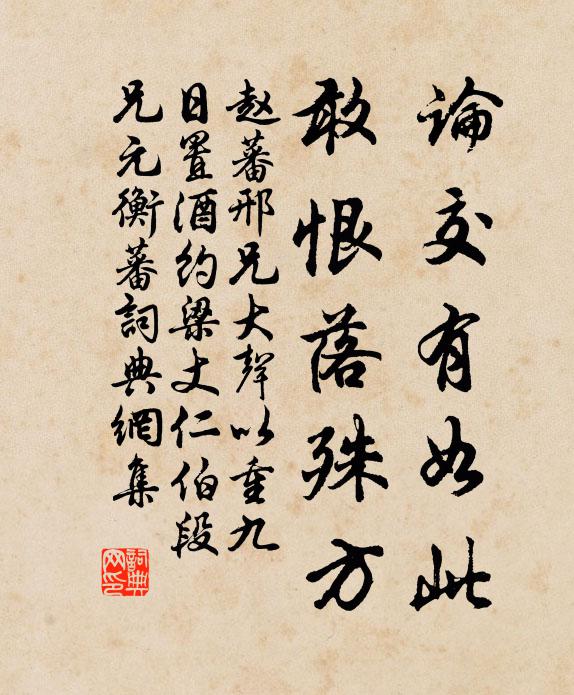 論交有如此
敢恨落殊方
趙蕃邢兄大聲以重九
日置酒約梁丈仁伯段
兄元衡蕃詞典網集
詞典网印